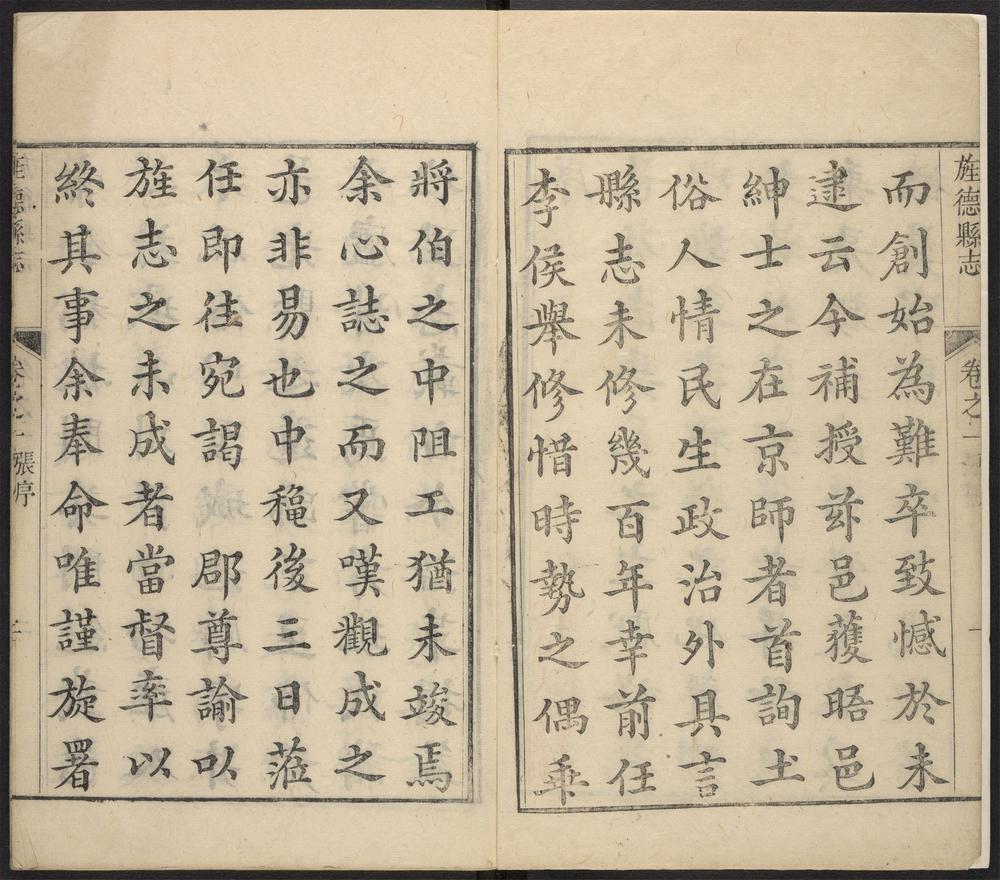 旌德縣志
卷之一
一
而創始為難卒致憾於未
逮云今補授茲邑獲晤邑
紳士之在京師者首詢土
俗人情民生政治外具言
縣志未修幾百年幸前任
李侯舉修惜時勢之偶乖
將伯之中阻工猶未竣焉
余心誌之而又嘆觀成之
亦非易也中穐後三日蒞
任即往宛謁郡尊諭以
旌志之未成者當督率以
終其事余奉命唯謹旋署
旌德縣志
卷之一張序